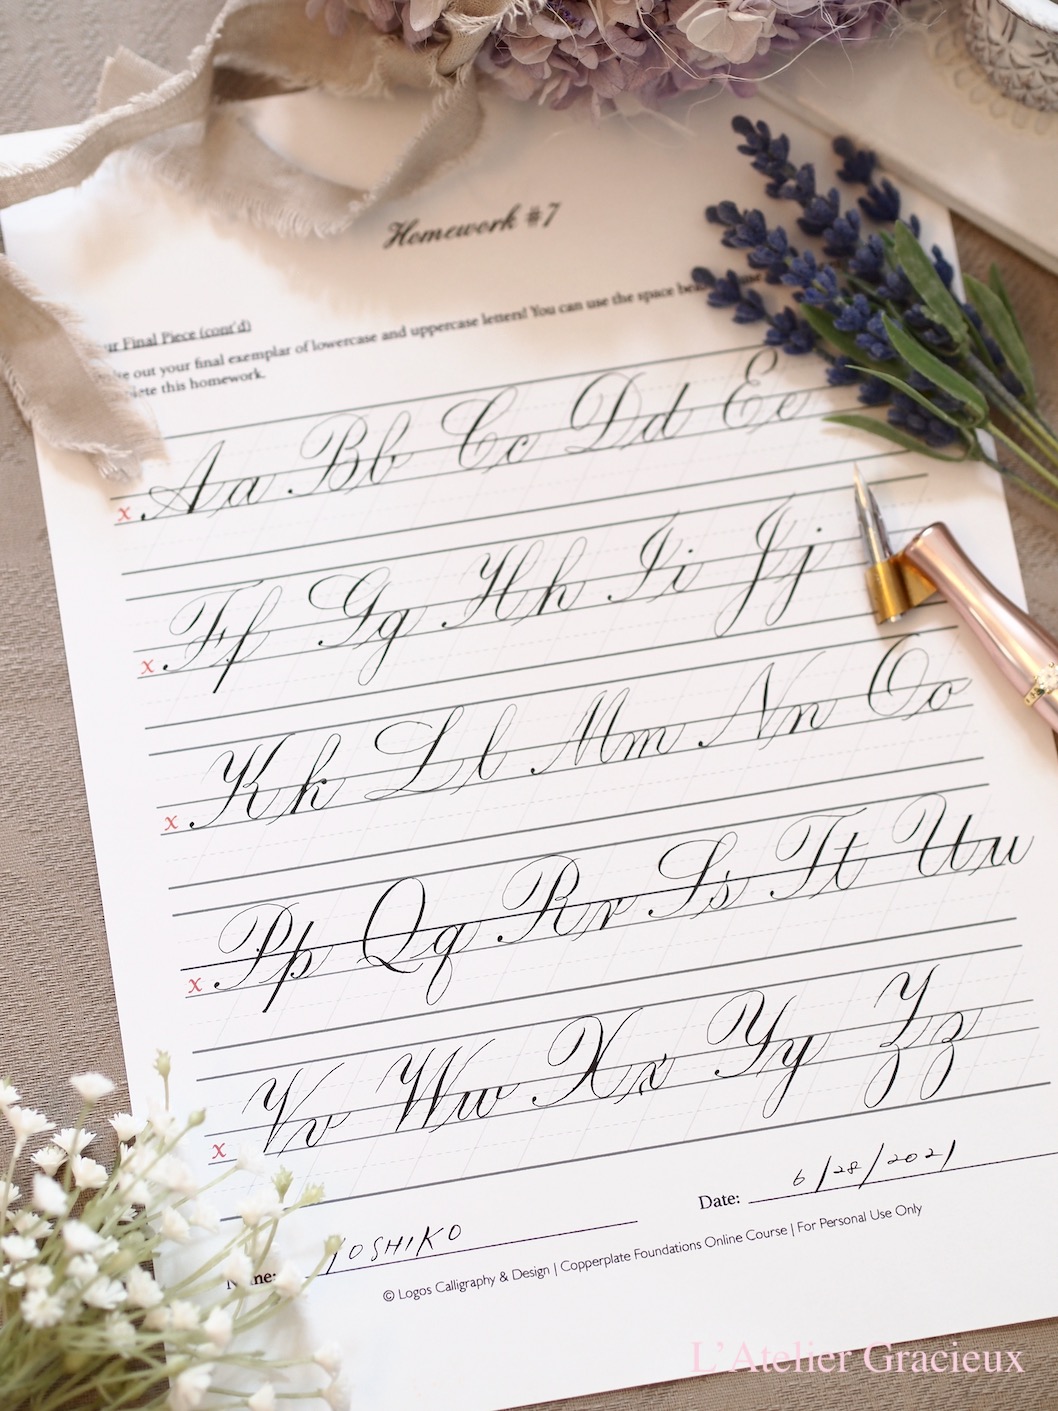 Homework #7
Final Piece (cont'd)
out your final exemplar of lowercase and uppercase letters! You can use the space
this homework.
x Aa Bb Cc Dd Ee
x Ff Gg Hh Ii Jj
x Kk Ll Mm Nn Oo
x Pp Qq Rr Ss Tt Uu
x Vv Ww Xx Yy Zz
Name: YOSHIKO Date: 6/28/2021
© Logos Calligraphy & Design | Copperplate Foundations Online Course | For Personal Use Only
L'Atelier Gracieux